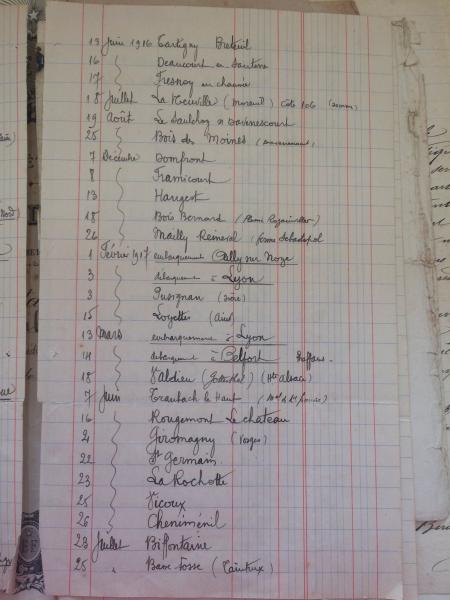 13 Juin 1916 Tartigny Breteuil
16 Beaucourt en Santerre
17 Fresnoy en chaussée
18 Juillet La Neuville (Moreuil) Côte 106 (Somme)
19 Août Le Saulchoy s Davenescourt
25 Bois des Moines
7 Décembre Domfront
8 Tramicourt
13 Hangest
18 Bois Bernard
26 Mailly Raineval ferme Sébastopol
1 Février 1917 embarquement Ailly sur Noye
3 débarquement à Lyon
3 Pusignan (Isère)
15 Loyettes (Ain)
13 Mars embarquement à Lyon
14 débarquement à Belfort
18 Valdieu (Hte Alsace)
7 Juin Traubach le Haut
16 Rougemont Le chateau
21 Giromagny (Vosges)
22 St Germain
23 La Rochotte
25 Vicoux
26 Cheniménil
23 Juillet Biffontaine
25 Basse fosse (Taintrux)